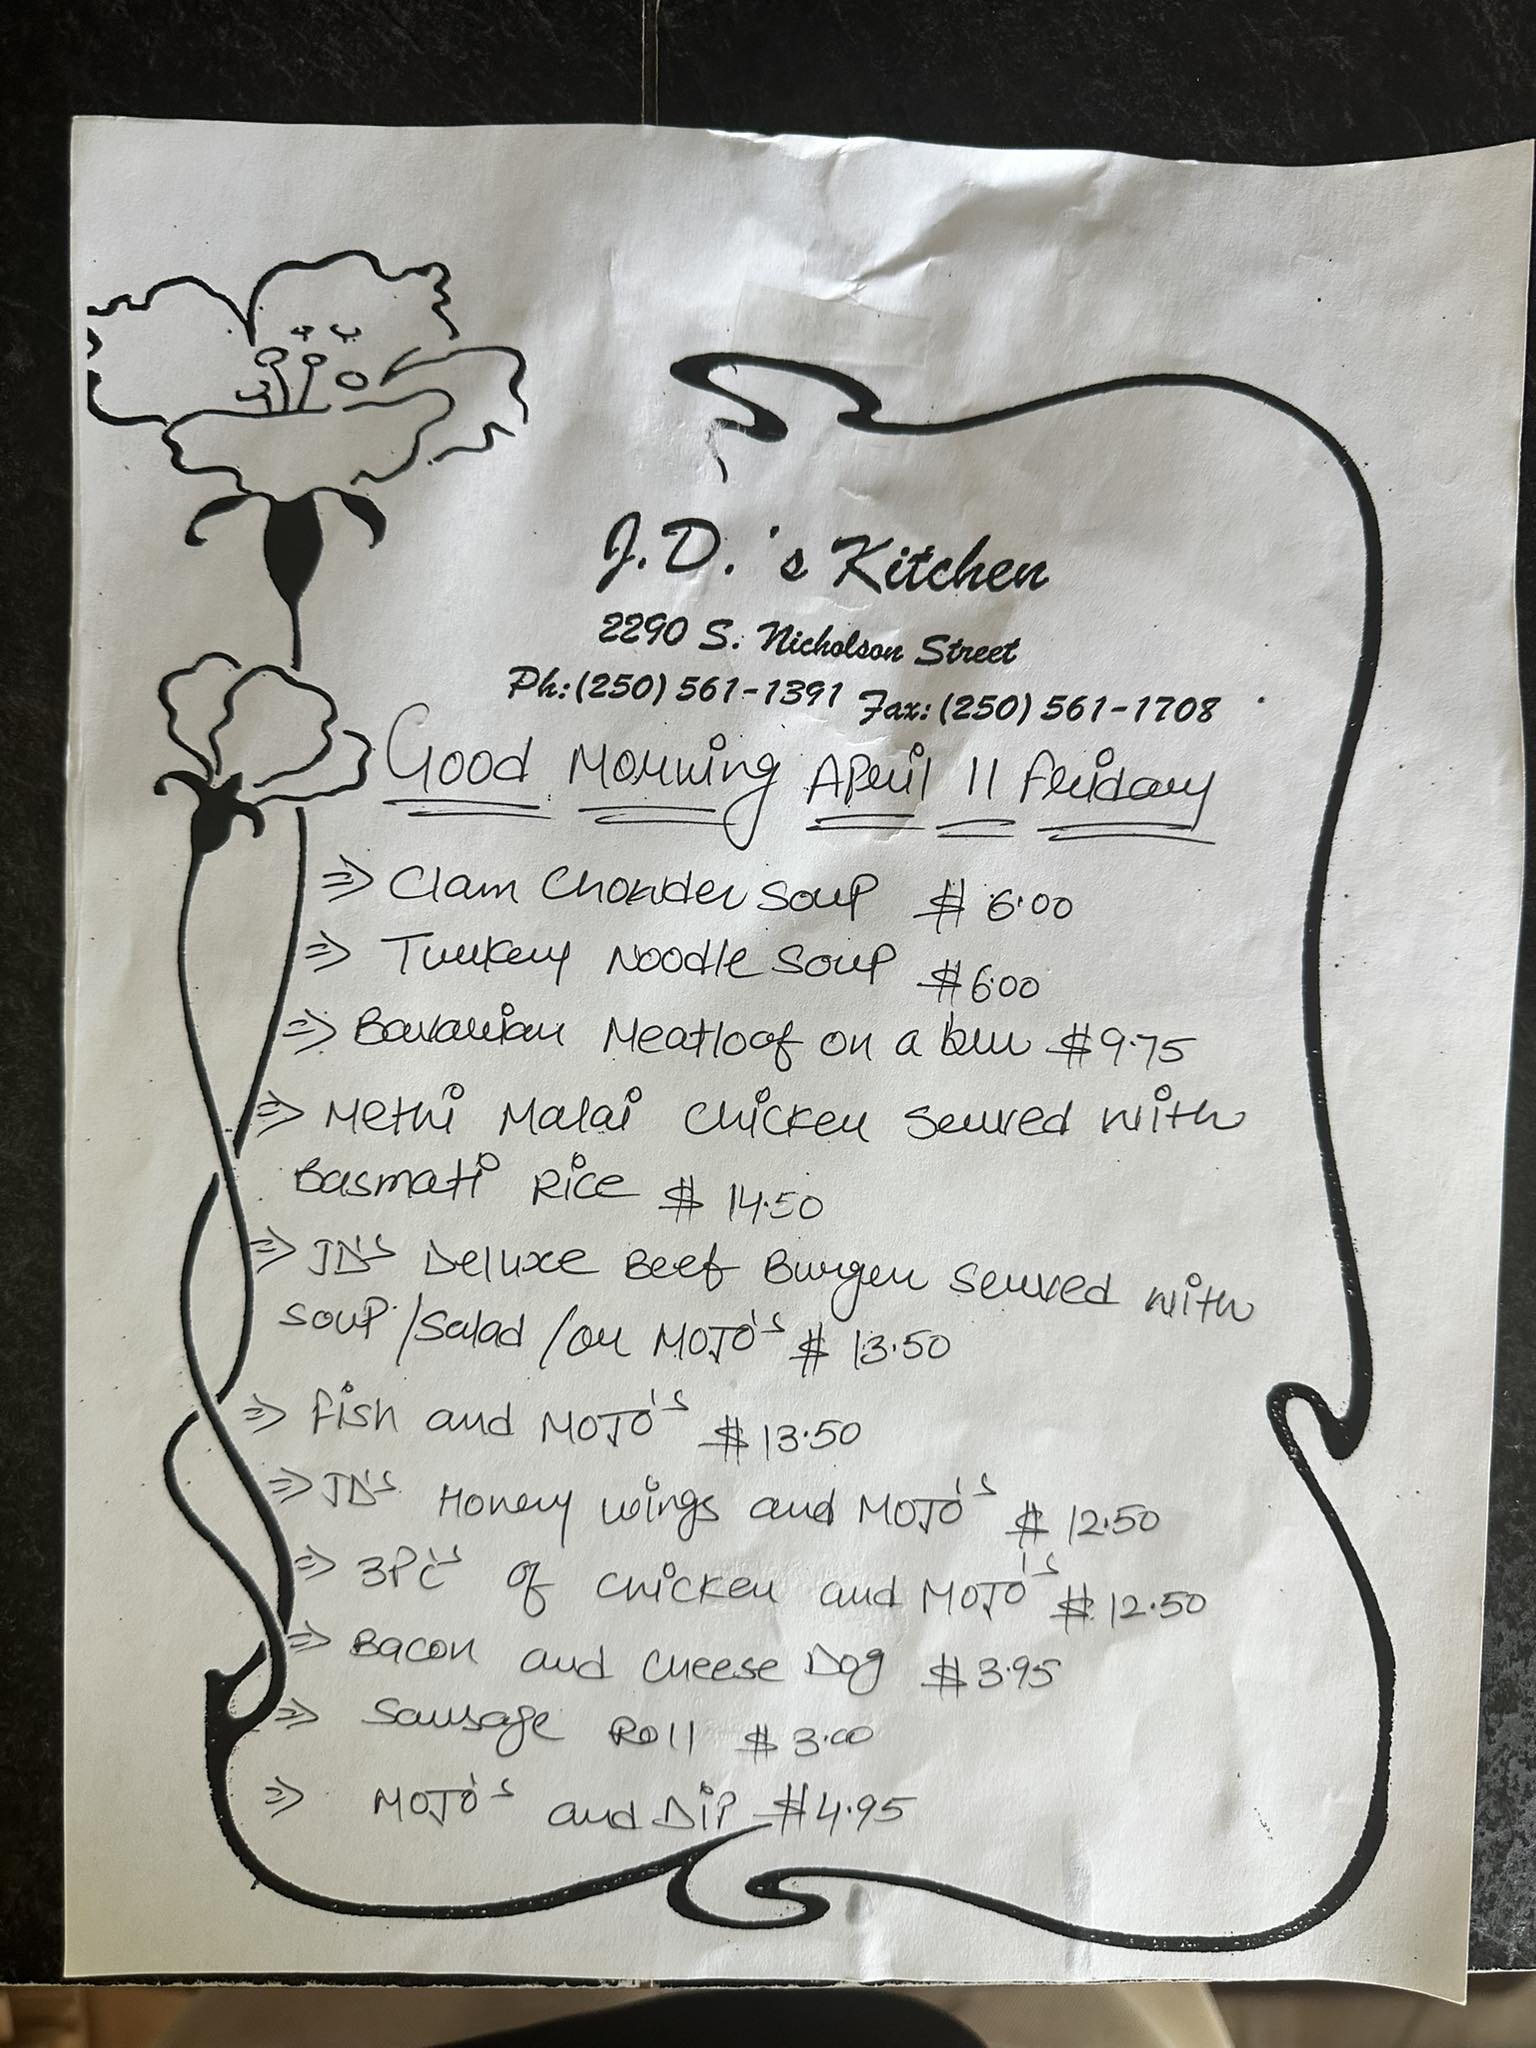 J.D.'s Kitchen
2290 S. Nicholson Street
Ph:(250) 561-1391 Fax: (250) 561-1708
Good Morning April 11 Friday
⇒ Clam Chowder Soup $ 6.00
⇒ Turkey Noodle Soup $6.00
⇒ Bavarian Meatloaf on a bun $9.75
⇒ Methi Malai Chicken Served with
Basmati Rice $ 14.50
⇒ JD's Deluxe Beef Burger Served with
Soup/Salad/or MOJO's $ 13.50
⇒ Fish and MOJO's $13.50
⇒ JD's Honey wings and MOJO's $ 12.50
⇒ 3PC's of Chicken and MOJO's $ 12.50
⇒ Bacon and Cheese Dog $3.95
⇒ Sausage Roll $ 3.00
⇒ MOJO's and Dip $4.95